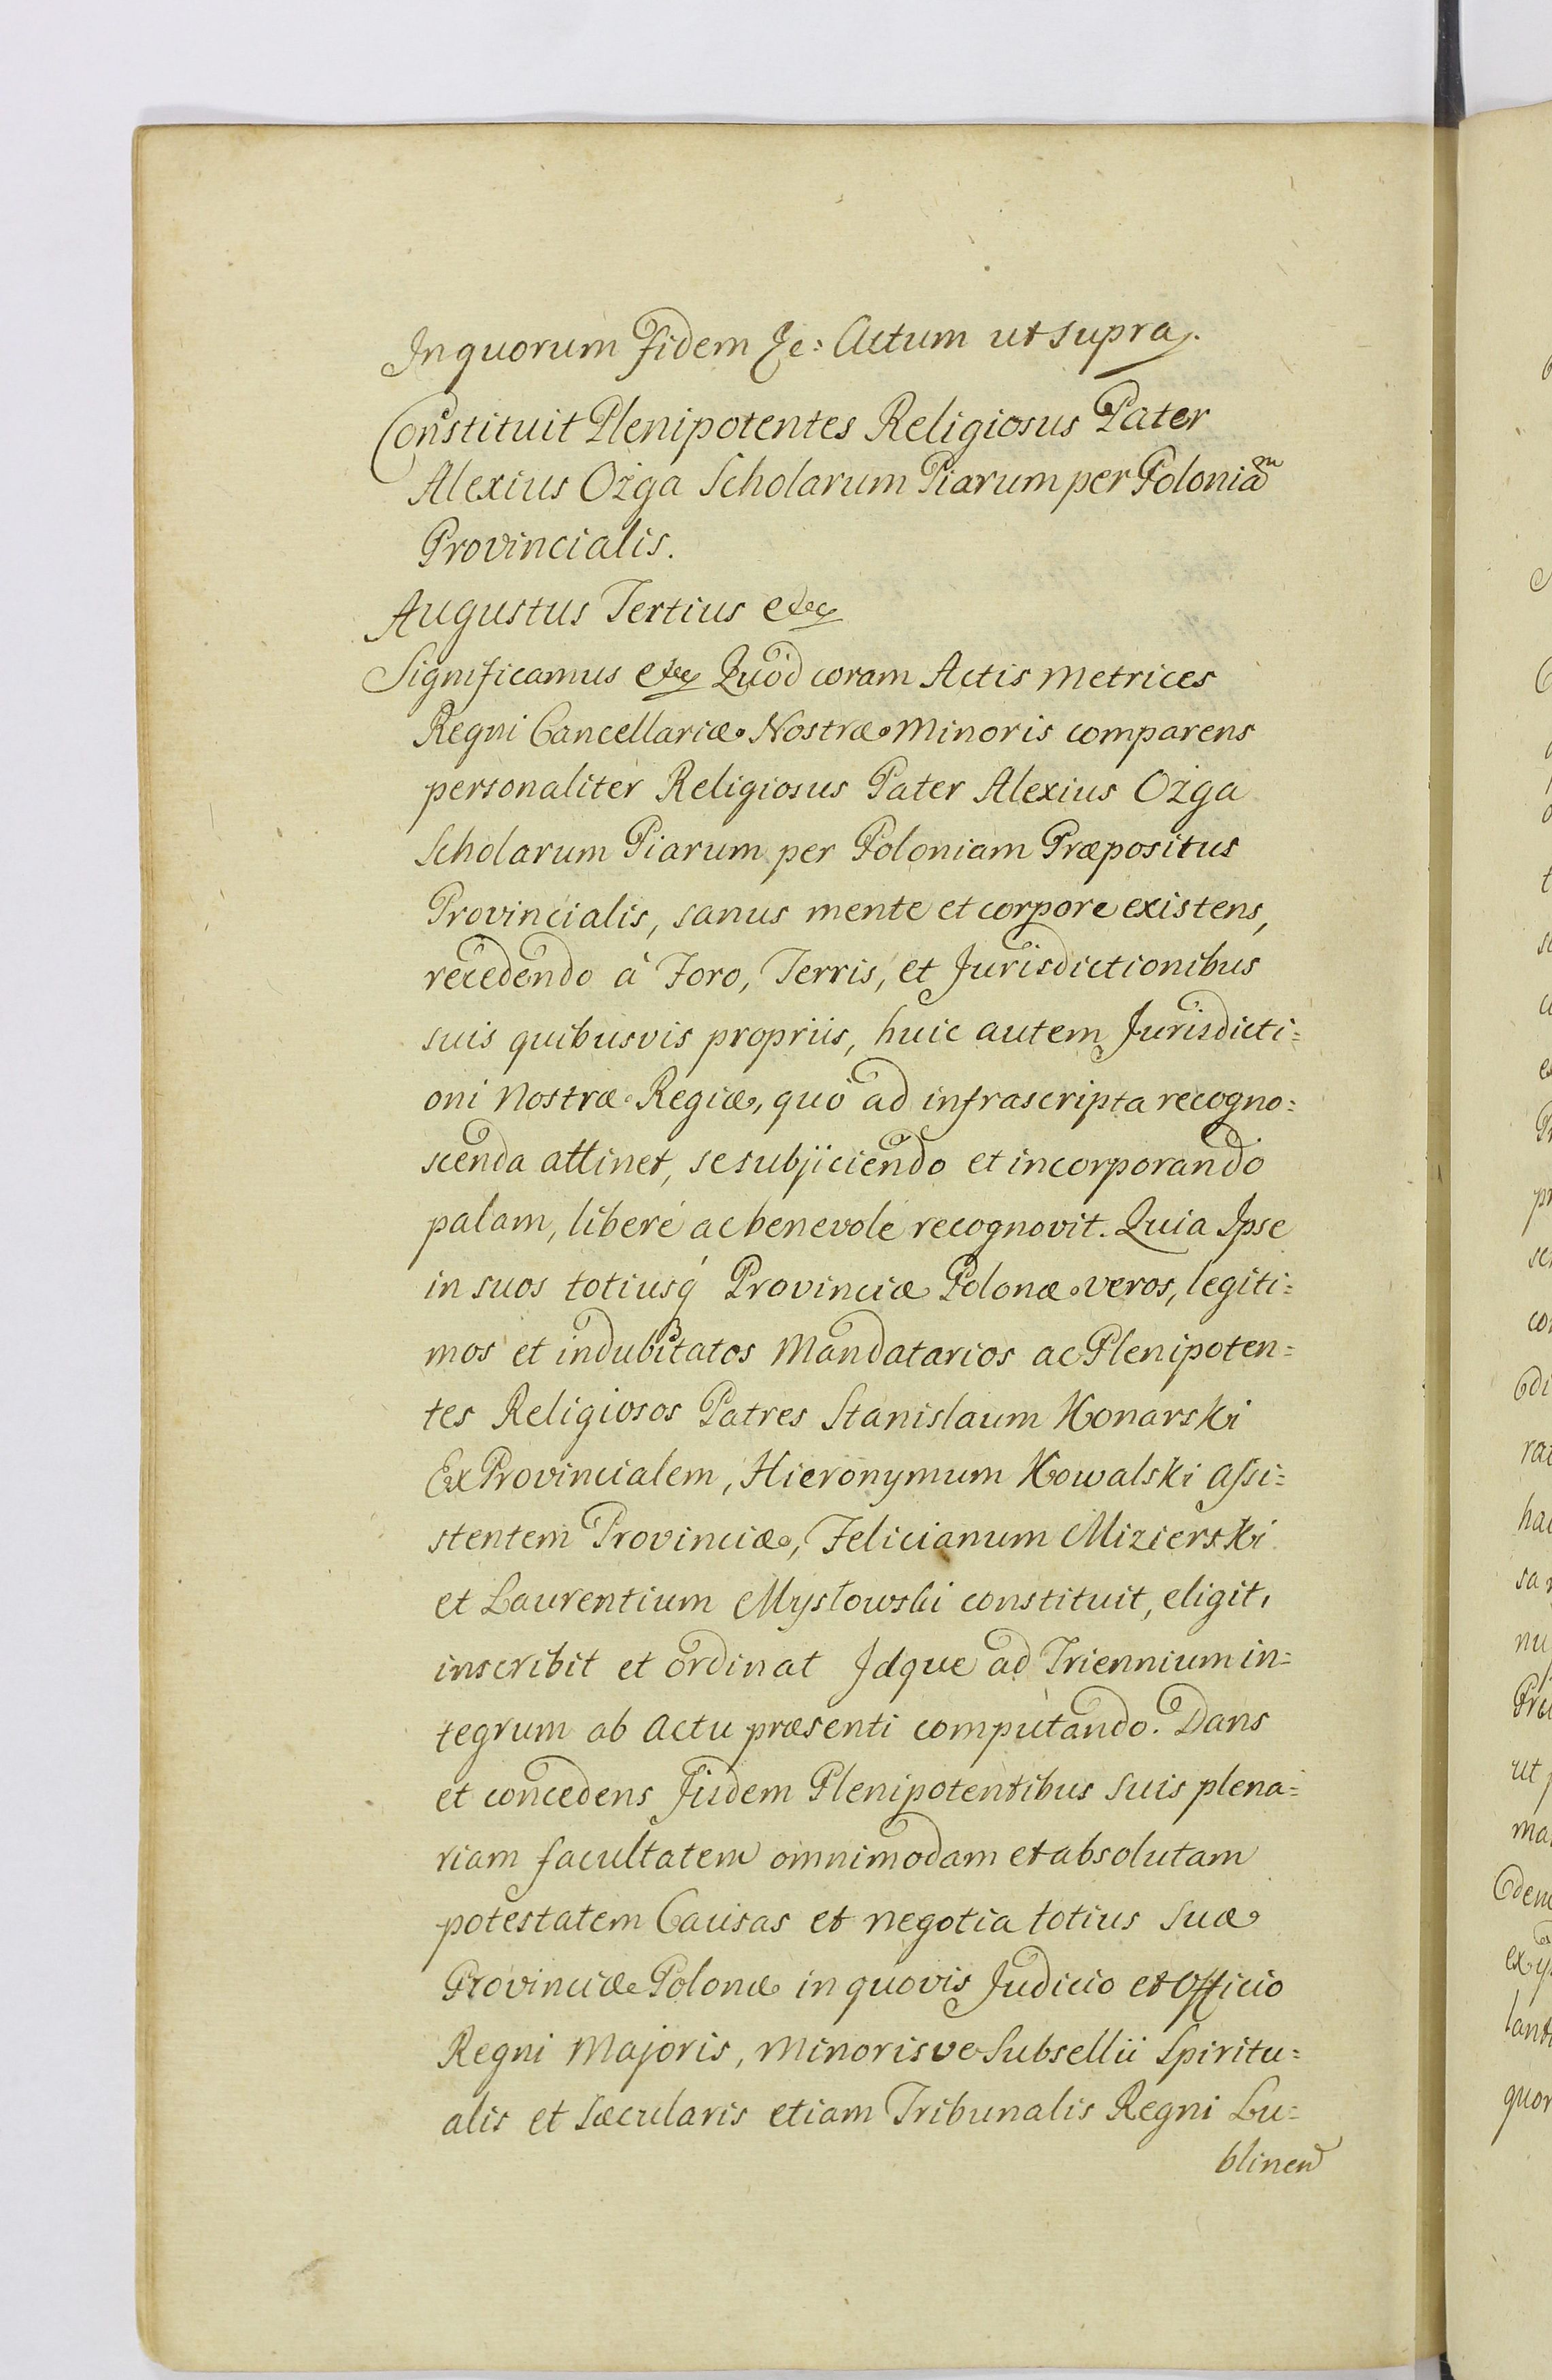 In quorum fidem &c: Actum ut supra.
Constituit Plenipotentes Religiosus Pater
Alexius Ożga Scholarum Piarum per Polonia͠m
Provincialis.
Augustus Tertius etc
Significamus etc Quòd coram Actis Metrices
Regni Cancellariæ Nostræ Minoris comparens
personaliter Religiosus Pater Alexius Ożga
Scholarum Piarum per Poloniam Præpositus
Provincialis, sanus mente et corpore existens,
recedendo à Foro, Terris, et Jurisdictionibus
suis quibusvis propriis, huic autem Jurisdicti=
oni Nostræ Regiæ, quò ad infrascripta recogno=
scenda attinet, se subjiciendo et incorporando
palam, liberè ac benevolè recognovit. Quia Ipse
in suos totiusq́ Provinciæ Polonæ veros, legiti=
mos et indubitatos Mandatarios ac Plenipoten=
tes Religiosos Patres Stanislaum Konarski
ExProvincialem, Hieronymum Kowalski Assi=
stentem Provinciæ, Felicianum Mizierski
et Laurentium Mysłowski constituit, eligit,
inscribit et ordinat Idque ad Triennium in=
tegrum ab Actu præsenti computando. Dans
et concedens Iisdem Plenipotentibus suis plena=
riam facultatem omnimodam et absolutam
potestatem Causas et negotia totius suæ
Provinciæ Polonæ in quovis Judicio et Officio
Regni Majoris, Minorisve Subsellii Spiritu=
alis et Sæcularis etiam Tribunalis Regni Lu=
blinen